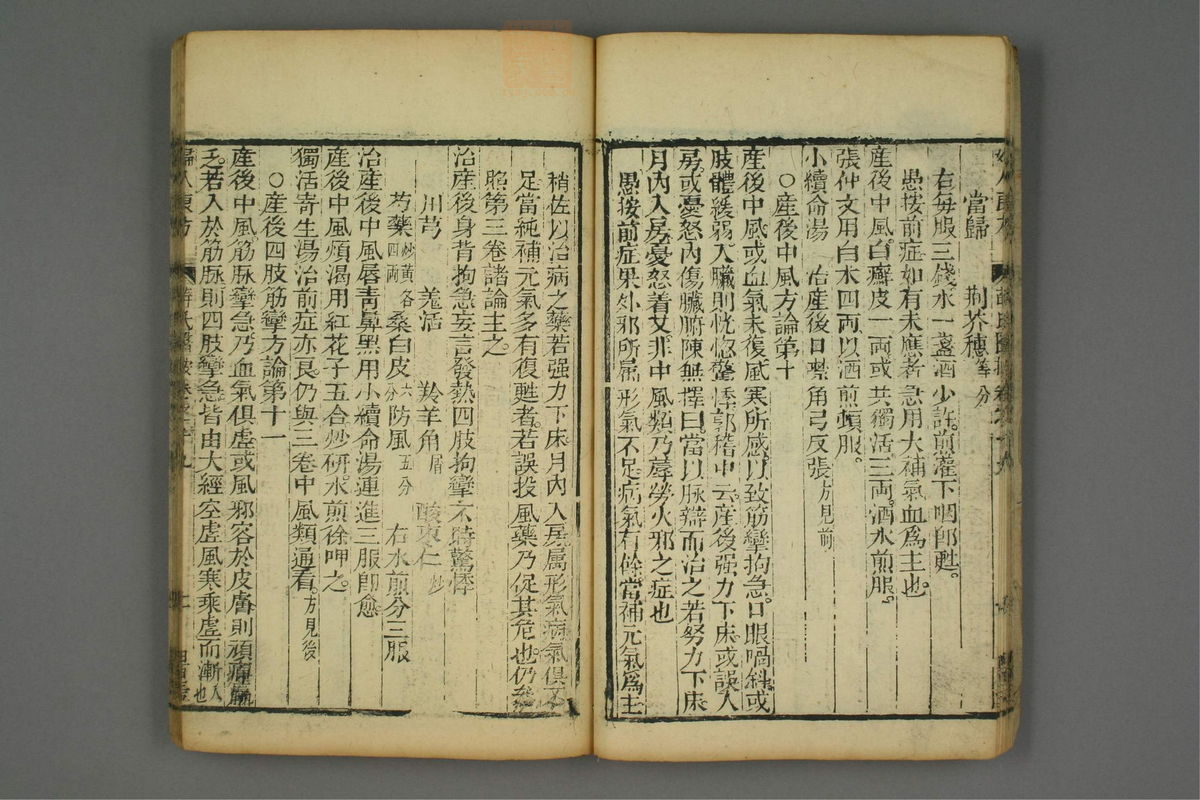 當歸 荆芥穗等分
右每服三錢水一盞酒少許煎灌下咽即甦。
愚按前症如有未應者急用大補氣血爲主也。
産後中風。白癬皮一兩或共獨活三兩。酒水煎服。
張仲文用白水四兩以酒煎頓服。
小續命湯 治産後口噤角弓反張方見前
〇産後中風方論第十
産後中風或血氣未復風寒所感以致筋攣拘急。口眼喎斜或
肢體緩弱。入臟則恍惚驚悸郭稽中云産後强力下床或誤入
房。或憂怒內傷臟腑陳無擇曰。當以脉辯而治之若努力下床
月內入房憂怒着艾非中風類乃蓐勞火邪之症也
愚按前症果外邪所屬形氣不足病氣有餘當補元氣爲主
稍佐以治病之藥若强力下床月內入房屬形氣病氣俱不
足當純補元氣多有復甦者。若誤投風藥乃促其危也。仍參
照第三卷諸論主之。
治産後身背拘急妄言發熱四肢拘攣不時驚悸
川芎 羗活 羚羊角屑 酸棗仁炒
芍藥炒黃各四兩 桑白皮六分 防風五分 右水煎分三服
治産後中風唇青鼻黑用小續命湯連進三服即愈
産後中風煩渴用紅花子五合炒研。水煎徐呷之。
獨活寄生湯治前症亦良仍與三卷中風類通看。方見後
〇産後四肢筋攣方論第十一
産後中風。筋脉攣急乃血氣俱虛或風邪客於皮膚則頑痺羸
乏。若入於筋脉則四肢攣急皆由大經空虛風寒乘虛而漸入也